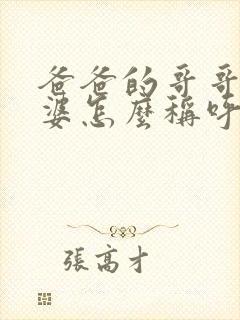 爸爸的哥哥
婆怎麼稱呼
張高才